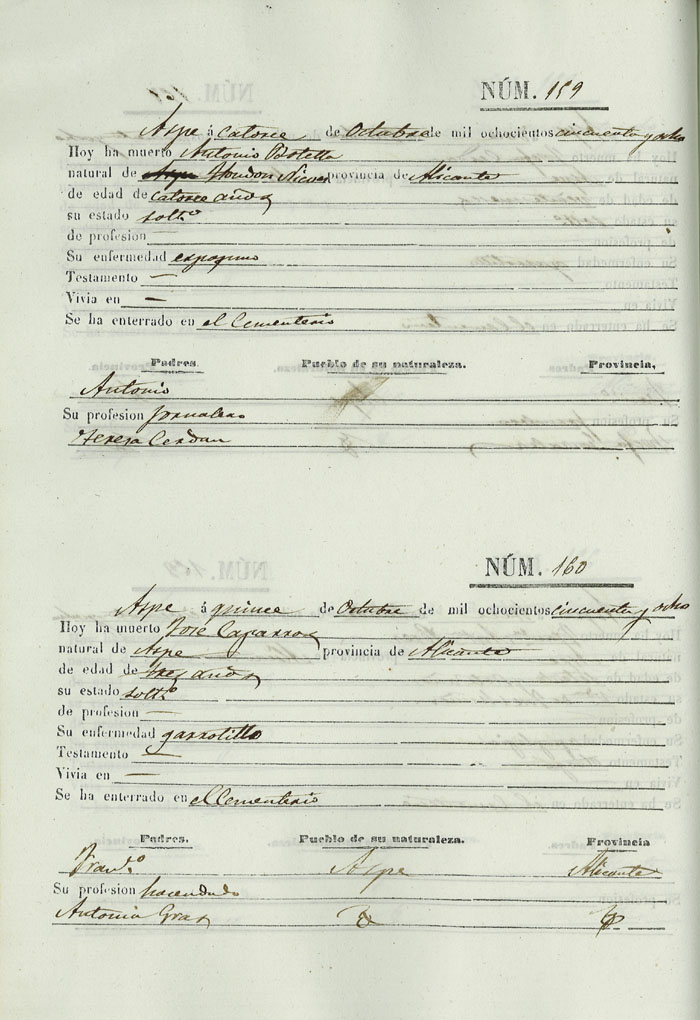 NÚM. 159
Aspe á catorce de Octubre de mil ochocientos cincuenta y ocho
Hoy ha muerto Antonio Botella
natural de Aspe Hondon Nieves provincia de Alicante
de edad de catorce años
su estado solt.º
de profesion
Su enfermedad
Testamento —
Vivia en —
Se ha enterrado en el Cementerio
Padres. Pueblo de su naturaleza. Provincia.
Antonio
Su profesion jornalero
Teresa Cerdan
NÚM. 160
Aspe á quince de Octubre de mil ochocientos cincuenta y ocho
Hoy ha muerto José Caparros
natural de Aspe provincia de Alicante
de edad de tres años
su estado solt.º
de profesion —
Su enfermedad garrotillo
Testamento —
Vivia en —
Se ha enterrado en el Cementerio
Padres. Pueblo de su naturaleza. Provincia
Fran.º Aspe Alicante
Su profesion hacendado
Antonia Gras